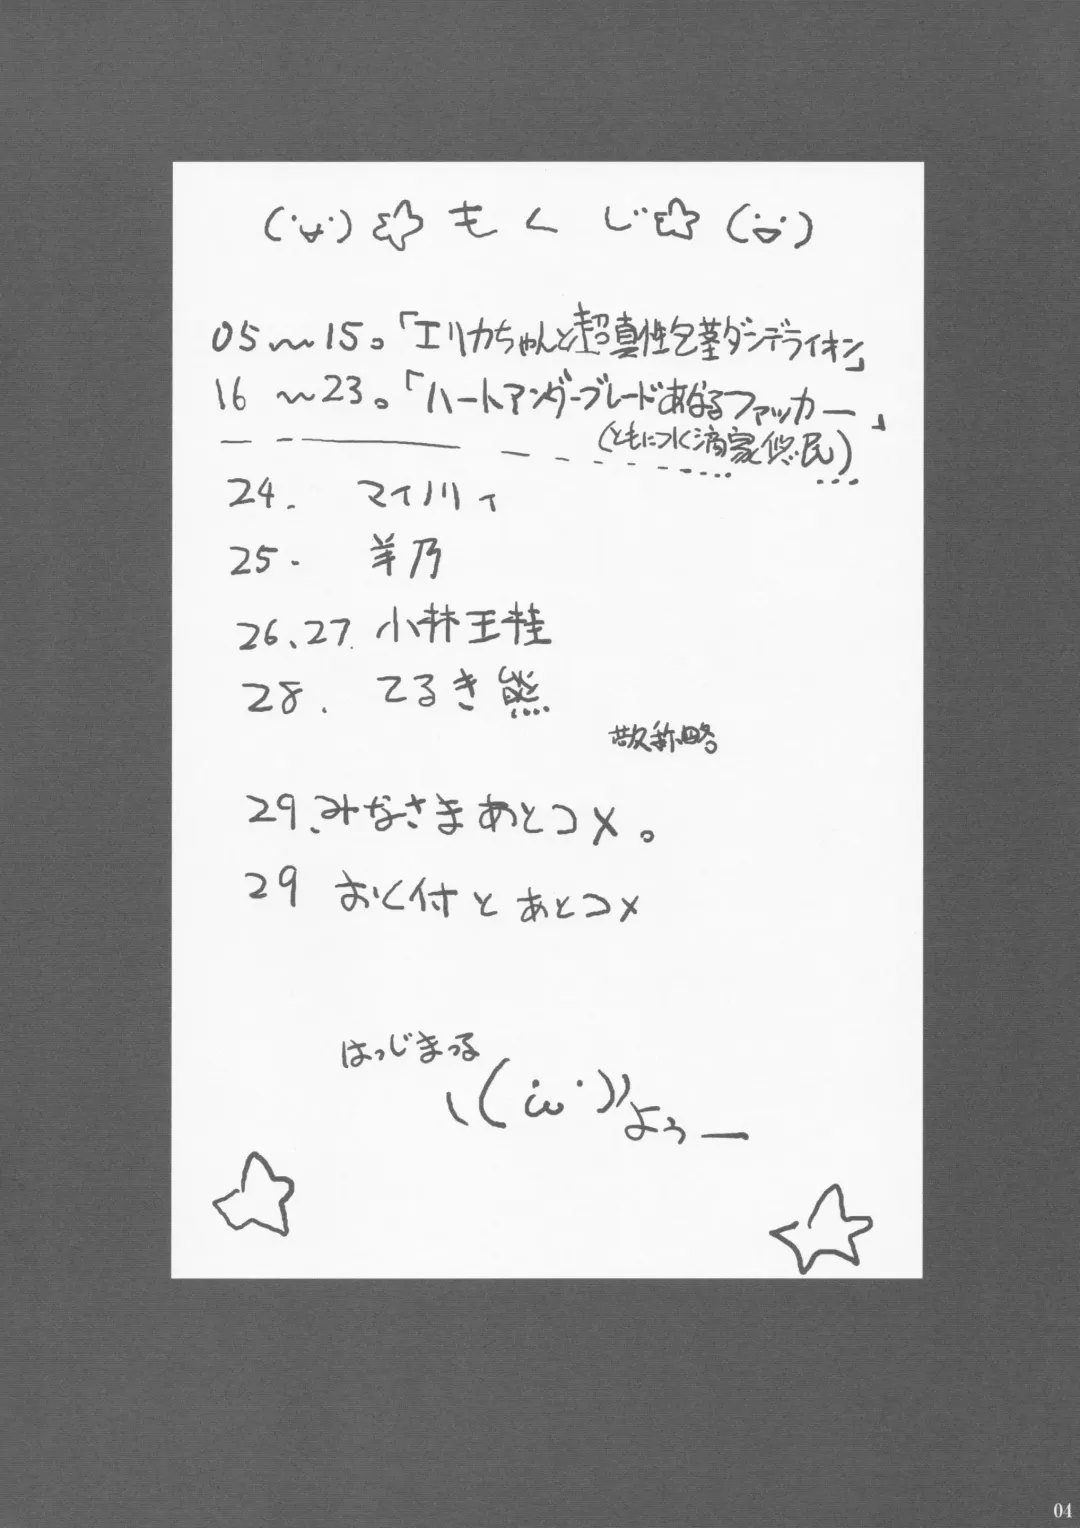 (・∀・)☆もくじ☆(・∀・)
05〜15。「エリカちゃんと超真性包茎ダンデライオン」
16〜23。「ハートアンダーブレードあなるファッカー」
(ともに水滴家悠民)
24. マイノリィ
25. 羊乃
26、27. 小林王桂
28. てるき熊
敬称略。
29、みなさまあとコメ。
29 おく付とあとコメ
はっじまっる
ヽ(・ω・)ﾉ よぅー
04